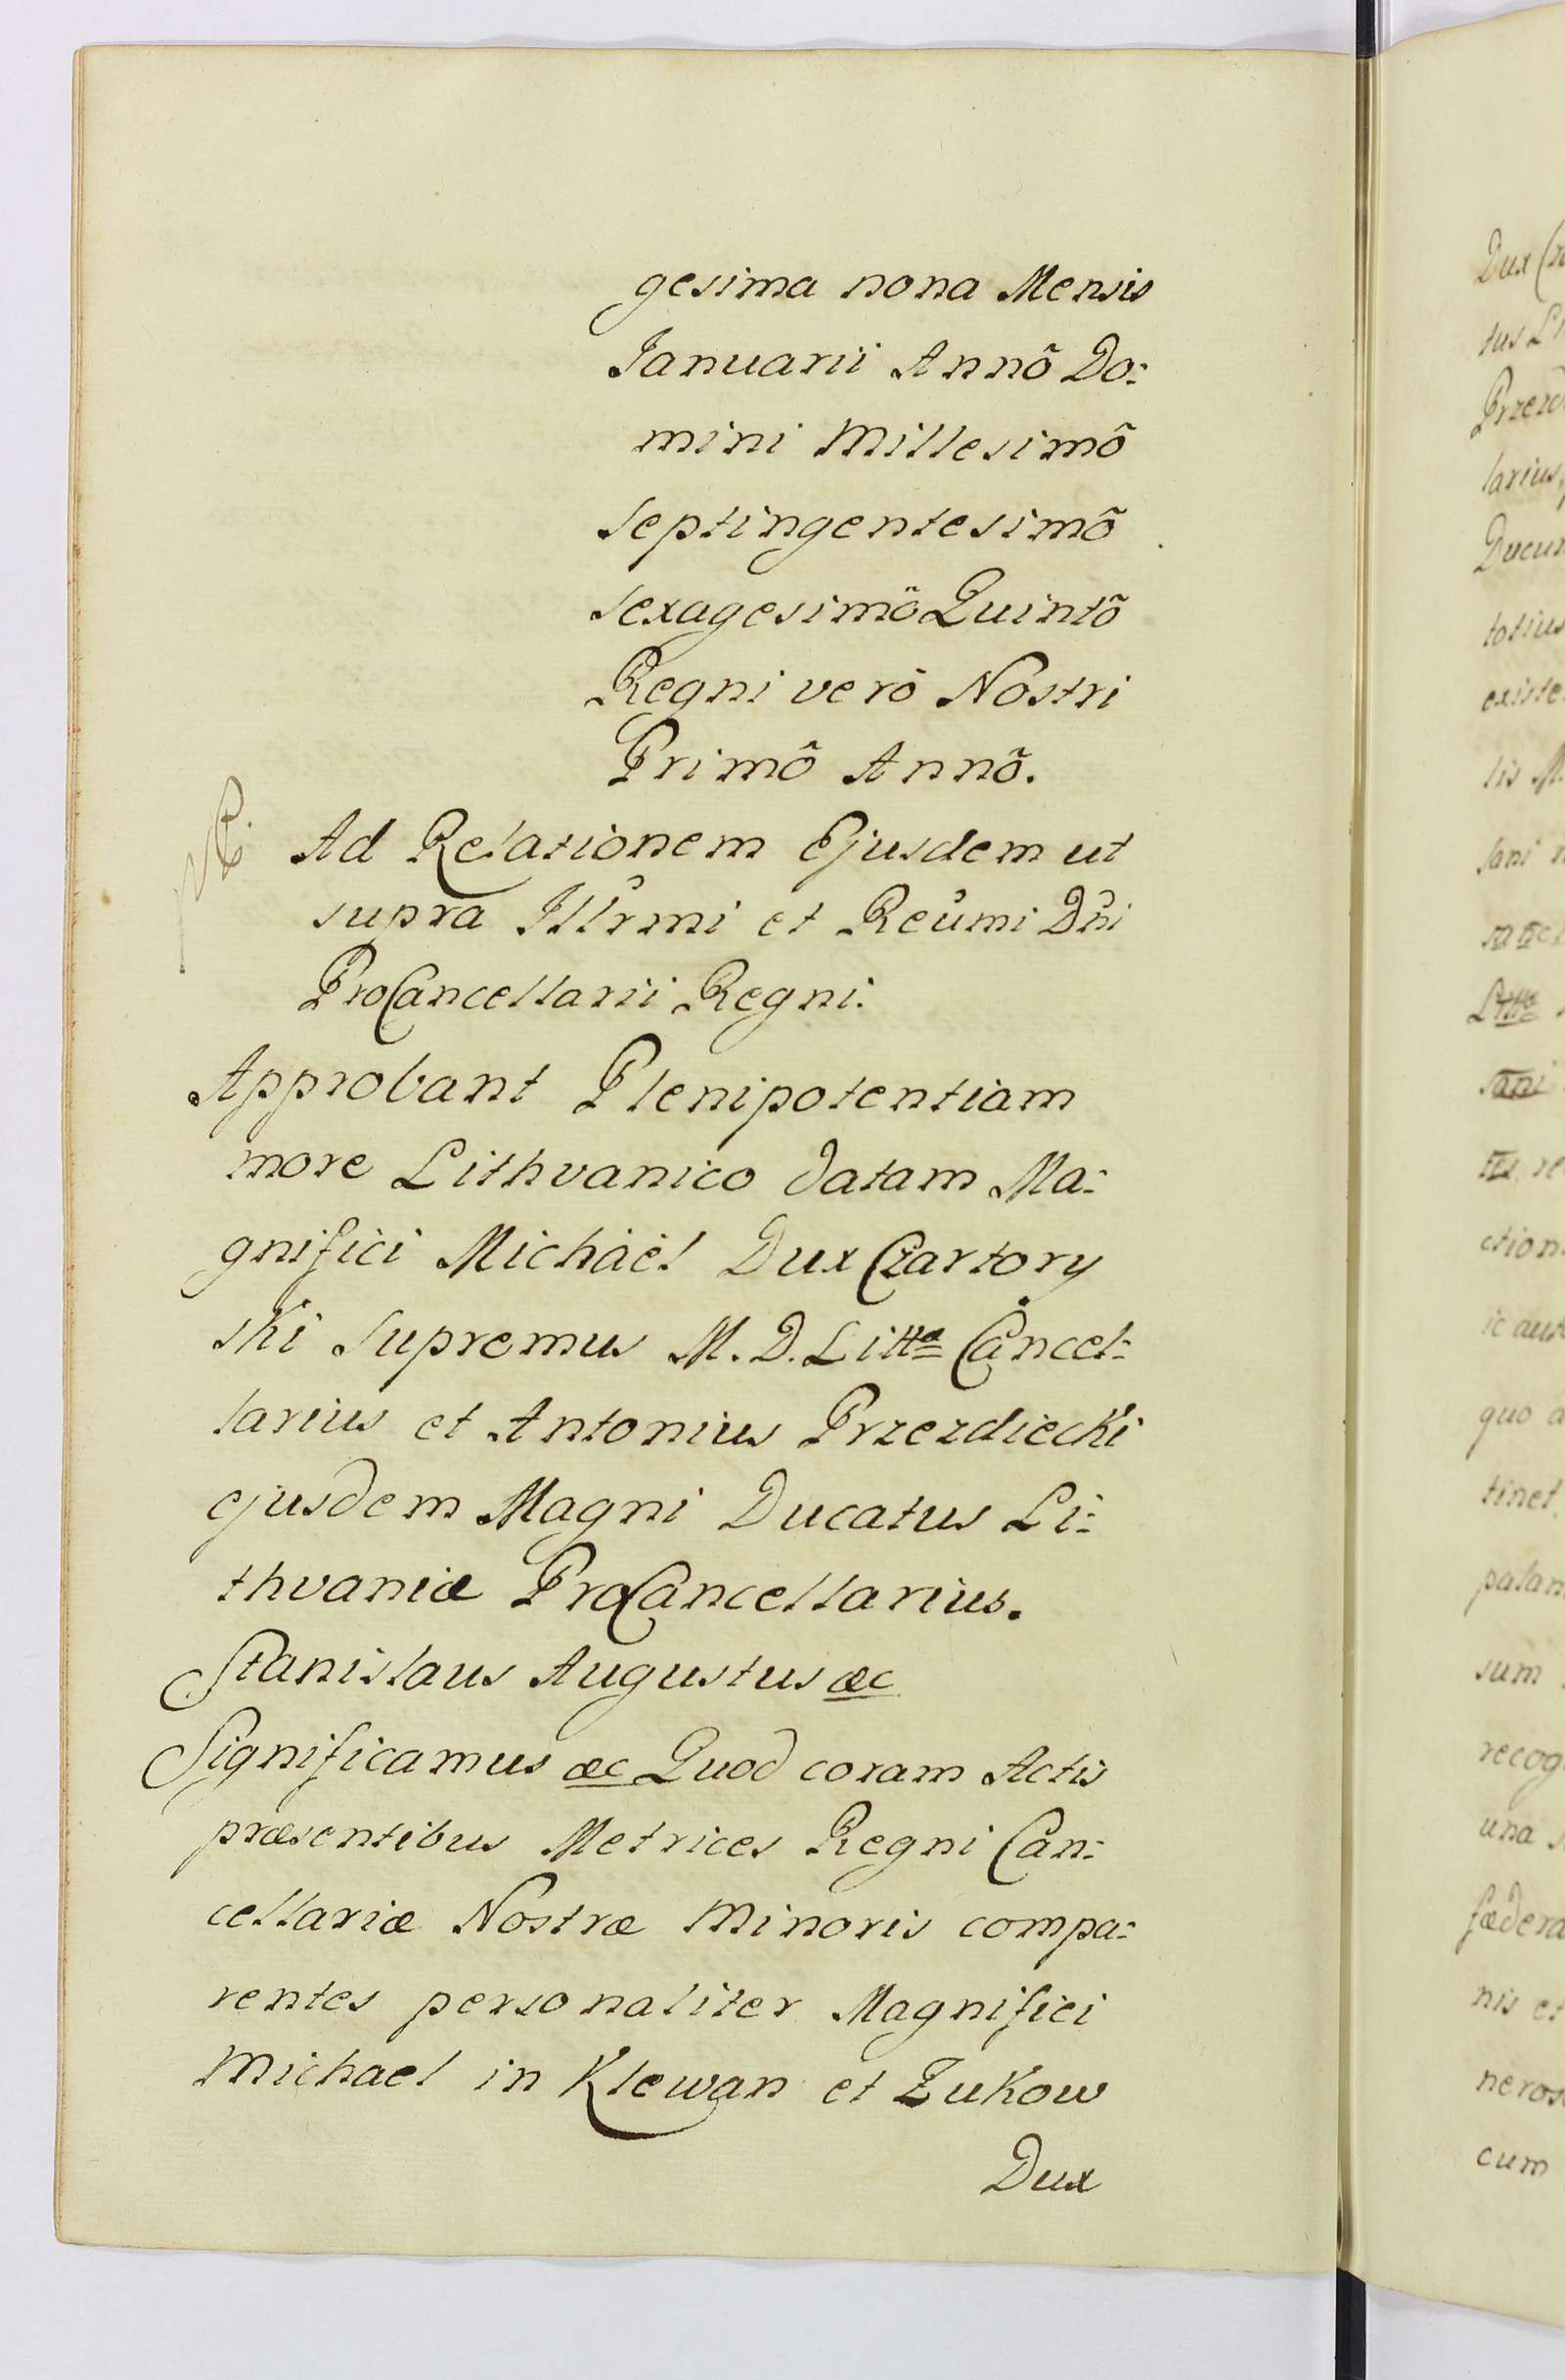 gesima nona Mensis
Januarii Annõ Do:
mini Millesimõ
septingentesimõ
sexagesimõ Quintõ
Regni verõ Nostri
Primõ Annõ.
Ad Relationem Ejusdem ut
supra Illrmi et Reûmi Dñi
ProCancellarii Regni.
Approbant Plenipotentiam
more Lithvanico datam Ma:
gnifici Michäel Dux Czartory
ski Supremus M. D. Litta Cancel:
larius et Antonius Przezdiecki
ejusdem Magni Ducatus Li:
thvaniæ ProCancellarius.
Stanislaus Augustus æc
Significamus æc Quod coram Actis
præsentibus Metrices Regni Can:
cellariæ Nostræ Minoris compa:
rentes personaliter Magnifici
Michael in Klewan et Zukow
Dux
Dux
tus
Przezd
larius,
totius
existe
lis M.
sani
Littæ
sani
ction
quo
tinet
palam
sum
recog
una
fædera
nis et
neros
cum